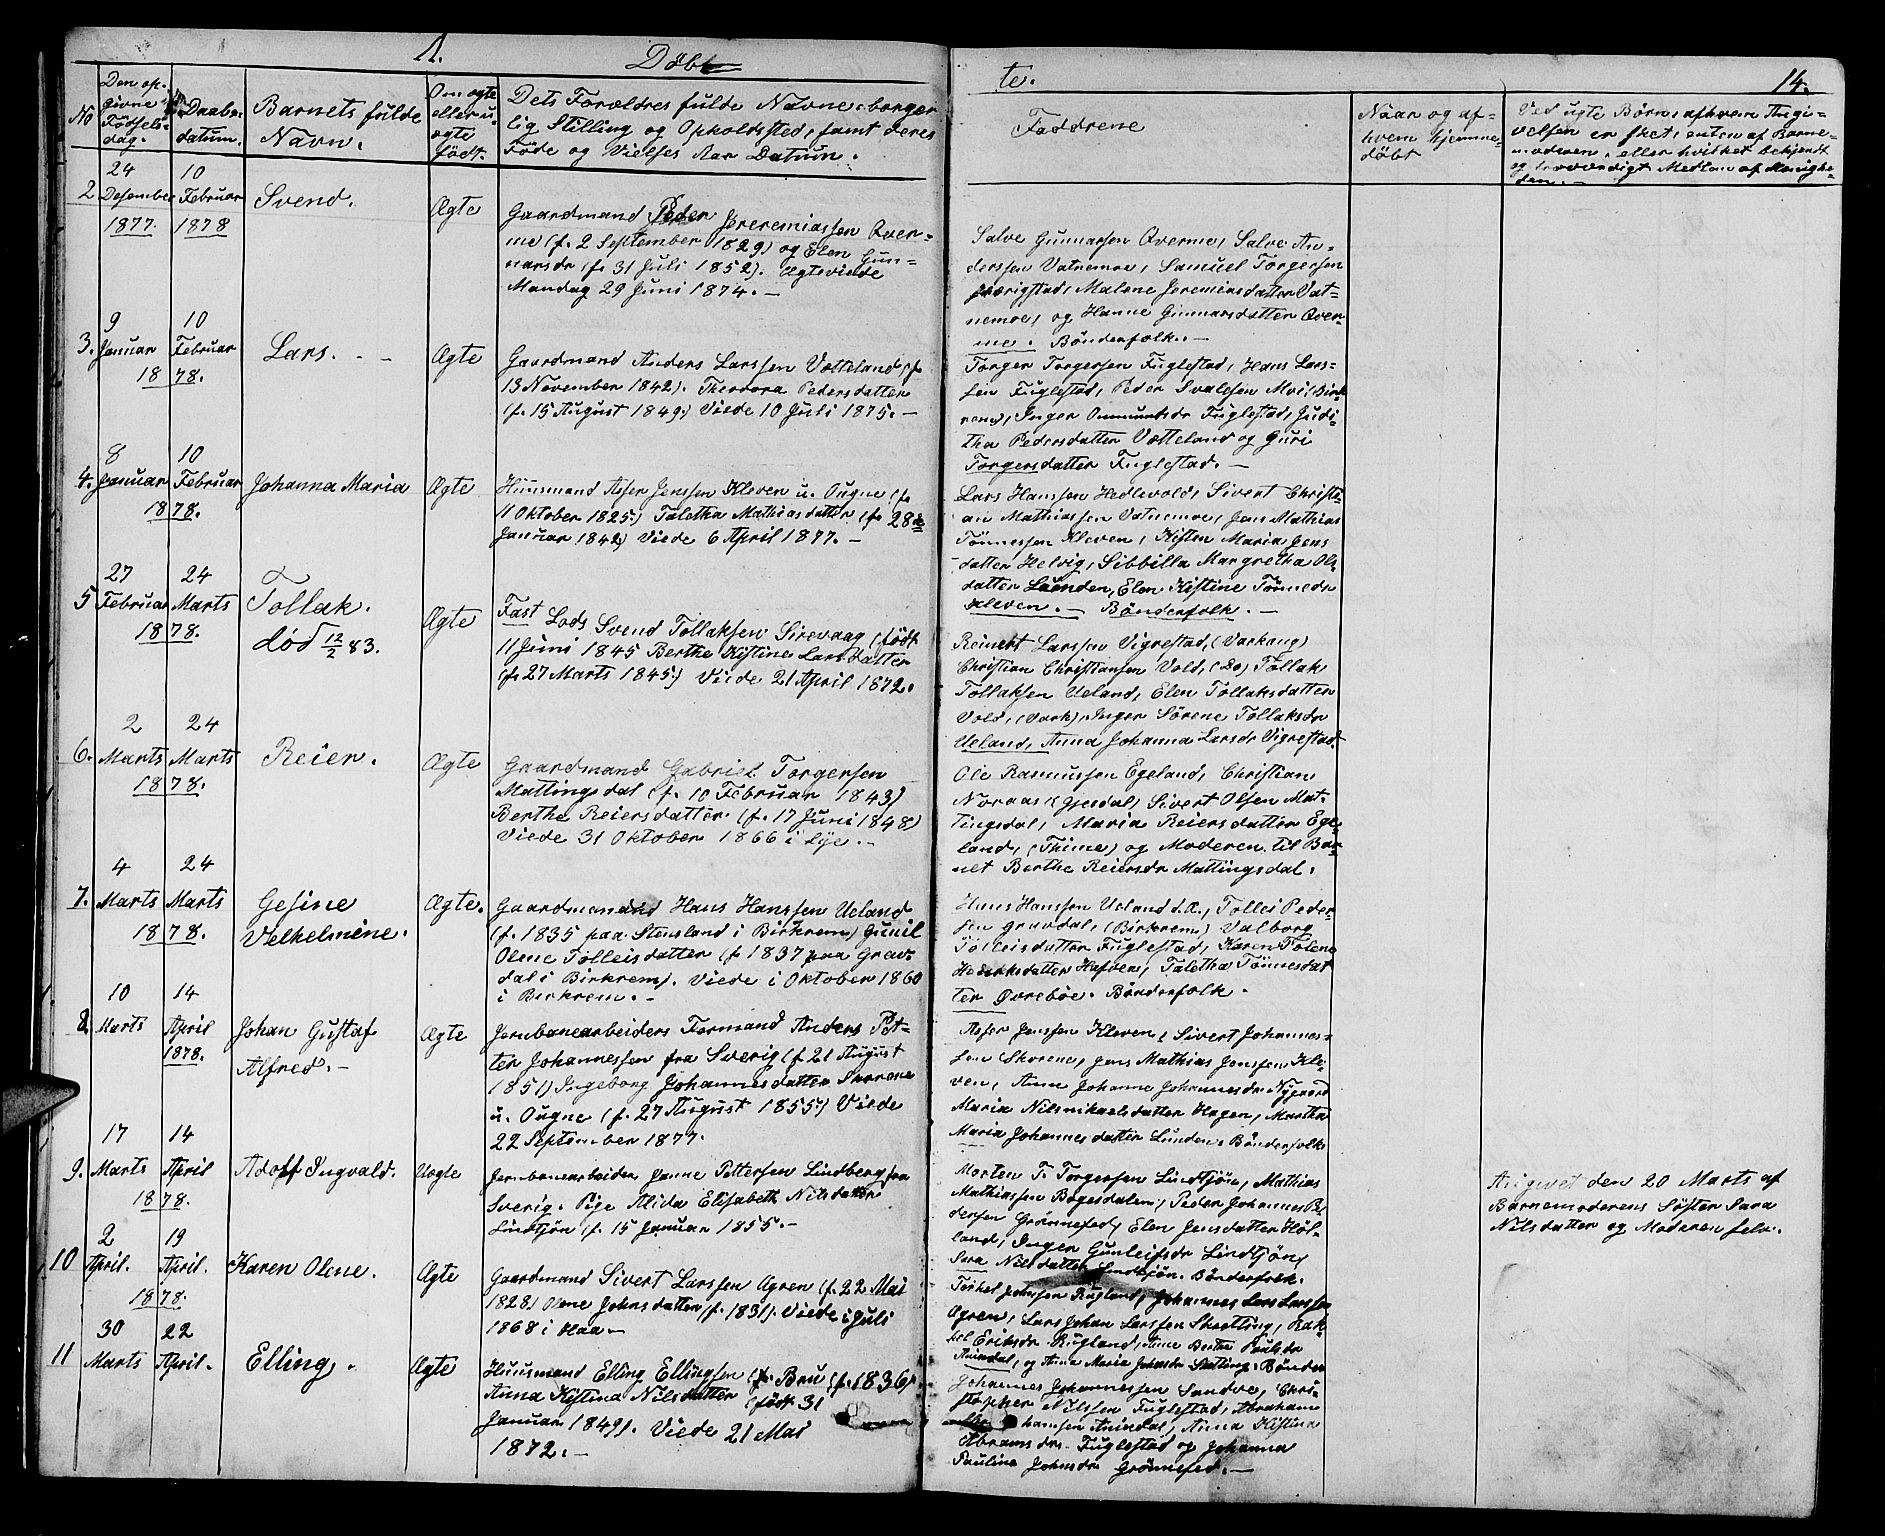 1.
Døbte.
14.
No
Den op-
givne
Fødsels-
dag.
Daabs-
datum.
Barnets fulde
Navn.
Om ægte
eller u-
ægte
født.
Dets Forældres fulde Navne, borger-
lig Stilling og Opholdssted, samt deres
Føde og Vielses Aar Datum.
Faddrene
Naar og af
hvem hjemme-
døbt
Ved uægte Børn, afhvem Angi-
velsen er sket, enten af Barne-
moderen, eller hvilket bekjendt
og troværdigt Medlem af Menighe-
den.
2
24
Desember
1877.
10
Februar
1878
Svend.
Ægte
Gaardmand Peder Jeremiassen Qver-
me (f. 2 September 1829) og Elen Gun-
narsdr (f. 31 Juli 1852). Ægteviede
Mandag 29 Juni 1874. –
Salve Gunnarsen Qverme, Salve An-
derssen Vatnemoe, Samuel Torgersen
Malene Jeremiasdatter Vat-
nemoe, og Hanne Gunnarsdatter Qver-
me. Bønderfolk. –
3.
9
Januar
10
Februar
1878.
Lars. – –
Ægte
Gaardmand Anders Larssen Vætteland (f.
13 November 1842). Theodora Pedersdatter
(f. 15 August 1849.) Viede 10 Juli 1875. –
Torger Torgersen Fuglestad, Hans Lars-
sen Fuglestad, Peder Svalesen Moi, (Birk-
rem), Inger Ommundsdr Fuglestad, Judi-
tha Pedersdatter Vætteland og Guri
Torgersdatter Fuglestad. –
4.
8
Januar
10
Februar
1878.
Johanna Maria
Ægte
Huusmand Asser Jenssen Kleven u. Ougne (f.
11 Oktober 1825.) Taletha Mathiasdatter (f. 28de
Januar 1842) Viede 6 April 1877. –
Lars Hanssen Hedlevold, Sivert Christi-
an Mathiassen Vatnemoe, Jens Mathias
Tønnessen Kleven, Kisten Maria Jens
datter Helvig, Sibbilla Margretha Ols
datter Lunden, Elen Kistine Tønnesdr
Kleven. – Bønderfolk. –
5
27
Februar
24
Marts
1878.
Tollak.
død 12/2 83.
Ægte
Fast Lods Svend Tollaksen Sirevaag (født
11 Juni 1845 Berthe Kistine Larsdatter
(f. 27 Marts 1845.) Viede 21 April 1872.
Reinert Larssen Vigrestad, (Varhaug)
Christian Christiansen Vold, (Do) Tollak
Tollaksen Ueland, Elen Tollaksdatter
Vold, (Varh), Inger Sørene Tollaksdr
Ueland, Anna Johanna Larsdr Vigrestad.
6.
2
Marts
24
Marts
1878.
Reier.
Ægte
Gaardmand Gabriel Torgersen
Mattingsdal (f. 10 Februar 1843)
Berthe Reiersdatter. (f. 17 Juni 1848)
Viede 31 Oktober 1866 i Lye. –
Ole Rasmussen Egeland, Christian
Noraas (Gjesdal, Sivert Olsen Mat-
tingsdal, Maria Reiersdatter Ege-
land, (Thime) og Moderen til Bar-
net Berthe Reiersdr Mattingsdal.
7.
4
Marts
24
Marts
1878.
Gesine
Velhelmine.
Ægte.
Gaardmand Hans Hanssen Ueland
(f. 1835 paa Stensland i Birkrem) Gunil
Olene Tolleisdatter (f. 1837 paa Grav-
dal i Birkrem). Viede i Oktober 1860
i Birkrem. –
Hans Hanssen Ueland d.Æ., Tollei Peder-
sen Gravdal, (Birkrem) Valborg
Tolleisdatter Fuglestad, Karen Tolena
Henriksdatter Hafven, Taletha Tønnesdat
ter Øvrebøe. Bønderfolk.
8.
10
Marts
14
April
1878.
Johan Gustaf
Alfred. –
Ægte
Jernbanearbeiders Formand Anders Pet-
ter Johannessen fra Sverig (f. 21 August
1851) Ingeborg Johannesdatter Skorene
u. Ougne (f. 27 August 1855.) Viede
22 September 1877.
Asser Jenssen Kleven, Sivert Johannes-
sen Skorene, Jens Mathias Jenssen Kle-
ven, Anne Johanne Johannesdr Nygaard
Maria Nilsmikaelsdatter Hagen, Martha
Maria Johannesdatter Lunden. Bønderfolk
9.
17
Marts
14
April
1878.
Adoff Ingvald.
Uægte
Jernbanearbeider Janne Pettersen Lindberg fra
Sverig. Pige Alida Elisabeth Nilsdatter
Lindtjøn (f. 15 Januar 1855. –
Morten T. Torgersen Lindtjøn, Mathias
Mathiassen Bøgesdalen, Peder Johannes Pe-
dersen Grønnefed, Elen Jensdatter Høl-
land, Inger Gunleifsdr Lindtjøn,
Sara Nilsdatter Lindtjøn. Bønderfolk.
Angivet den 20 Marts af
Barnemoderens Søster Sara
Nilsdatter og Moderen selv.
10
2
April.
19
April.
1878.
Karen Olene.
Ægte
Gaardmand Sivert Larssen Ogren (f. 22 Mai
1828) Olene Johnsdatter (f. 1831). Viede i Juli
1868 i Haa –
Torkel Jonssen Rugland, Johannes Lars Larssen
Ogren, Lars Johan Larssen Skretting, Rak-
kel Eriksdr Rugland, Ane Berthe Paulsdr
Aniedal, og Anna Maria Johnsdr Skretting. Bønder
11
30
Marts
22
April.
Elling.
Ægte
Huusmand Elling Ellingsen Bru (f. 1836)
Anna Kistina Nilsdatter (født 31
Januar 1849). Viede 21 Mai
1872. –
Johannes Johannessen Sandve, Chri-
stopher Nilssen Fuglestad, Abraham
Johansen Aniedal, Anna Kistina
Abramsdr Fuglestad og Johanna
Pauline Johnsdr Grønnefed. –